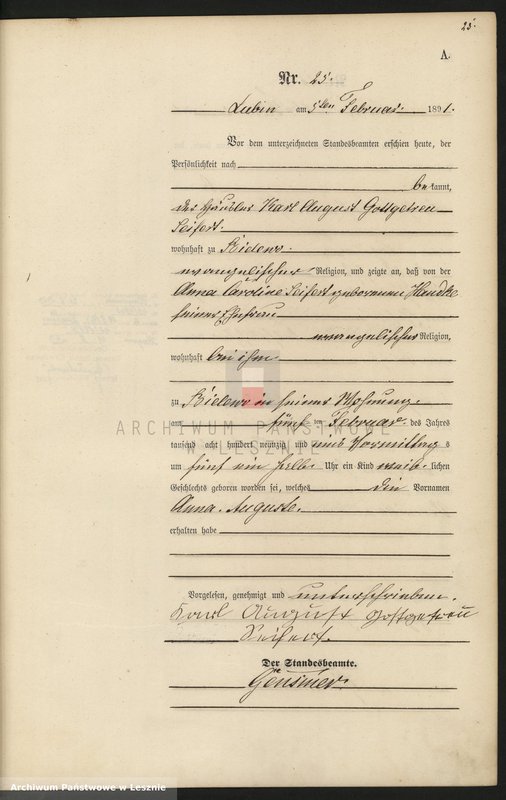 25.
A.
Nr. 25.
Lubin am 5ten Februar 1891.
Vor dem unterzeichneten Standesbeamten erschien heute, der
Persönlichkeit nach
be kannt,
der Häusler Karl August Gottgetreu
Seifert.
wohnhaft zu Bielewo.
evangelischer Religion, und zeigte an, daß von der
Anna Caroline Seifert geborenen Handke
seiner Ehefrau
evangelischer Religion,
wohnhaft bei ihm
zu Bielewo in seiner Wohnung
am fünf ten Februar des Jahres
tausend acht hundert neunzig und eins Vormittag s
um fünf ein halb Uhr ein Kind weib lichen
Geschlechts geboren worden sei, welches die Vornamen
Anna Auguste.
erhalten habe
Vorgelesen, genehmigt und unterschrieben.
Karl August Gottgetreu
Seifert.
Der Standesbeamte.
Gensmer.
ARCHIWUM PAŃSTWOWE
W LESZNIE
Archiwum Państwowe w Lesznie